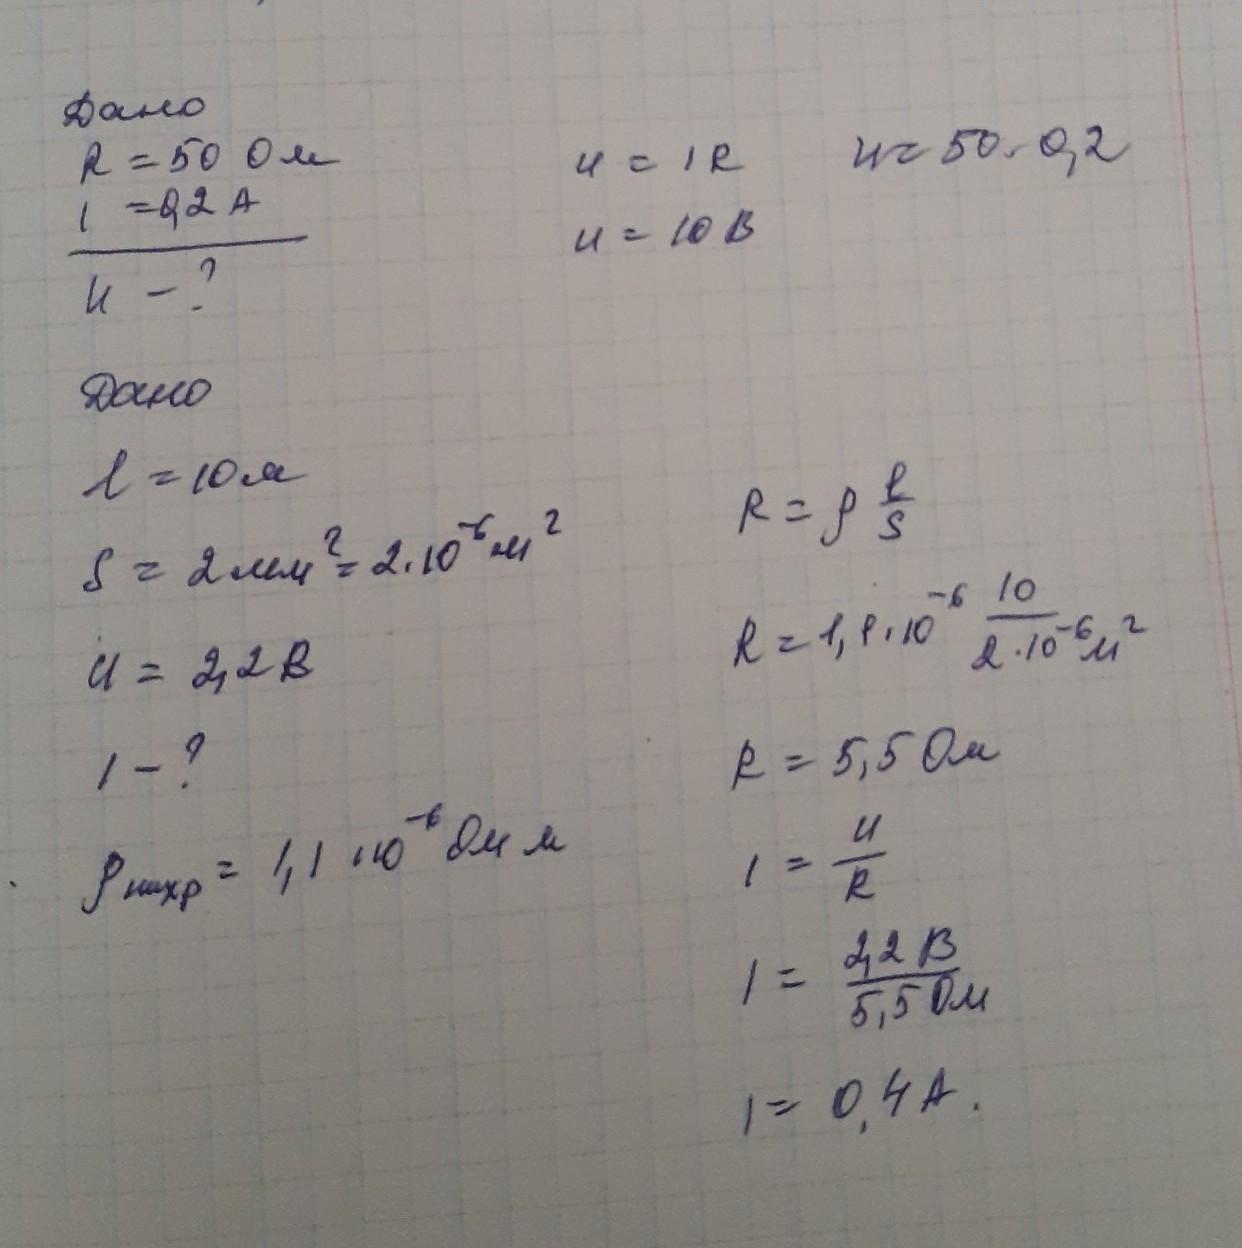 Дано
R = 50 Ом
I = 0,2 А
U - ?
U = IR U = 50 · 0,2
U = 10 В
Дано
l = 10 м
S = 2 мм² = 2 · 10⁻⁶ м²
U = 2,2 В
I - ?
ρнихр = 1,1 · 10⁻⁶ Ом м
R = ρ l/S
R = 1,1 · 10⁻⁶ 10/2 · 10⁻⁶ м²
R = 5,5 Ом
I = U/R
I = 2,2 В/5,5 Ом
I = 0,4 А.